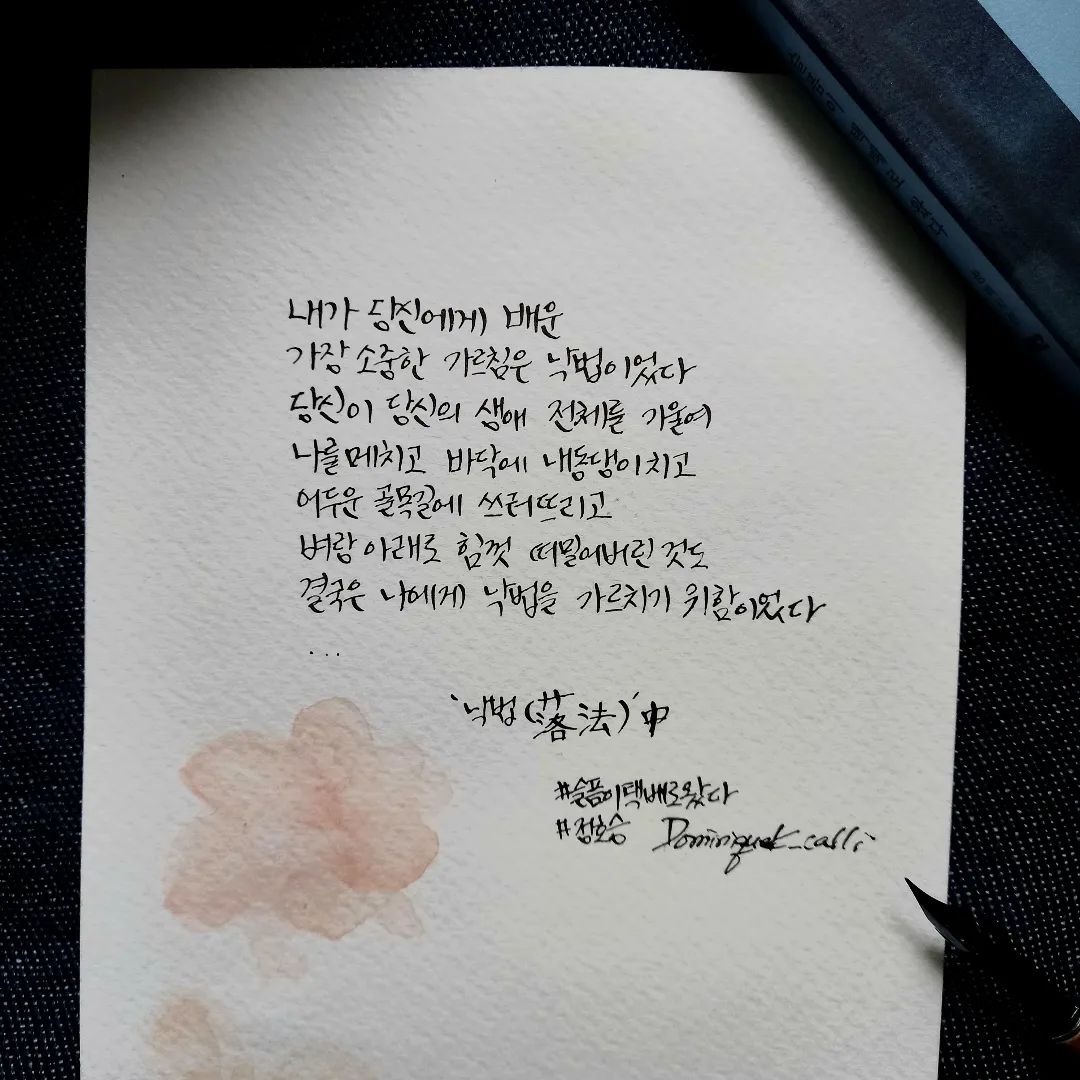 내가 당신에게 배운
가장 소중한 가르침은 낙법이었다
당신이 당신의 생애 전체를 기울여
나를 메치고 바닥에 내동댕이치고
어두운 골목길에 쓰러뜨리고
벼랑 아래로 힘껏 떠밀어버린 것도
결국은 나에게 낙법을 가르치기 위함이었다
...
'낙법(落法)'中
#슬픔이택배로왔다
#정호승 Dominique_calli
슬픔이 택배로 왔다